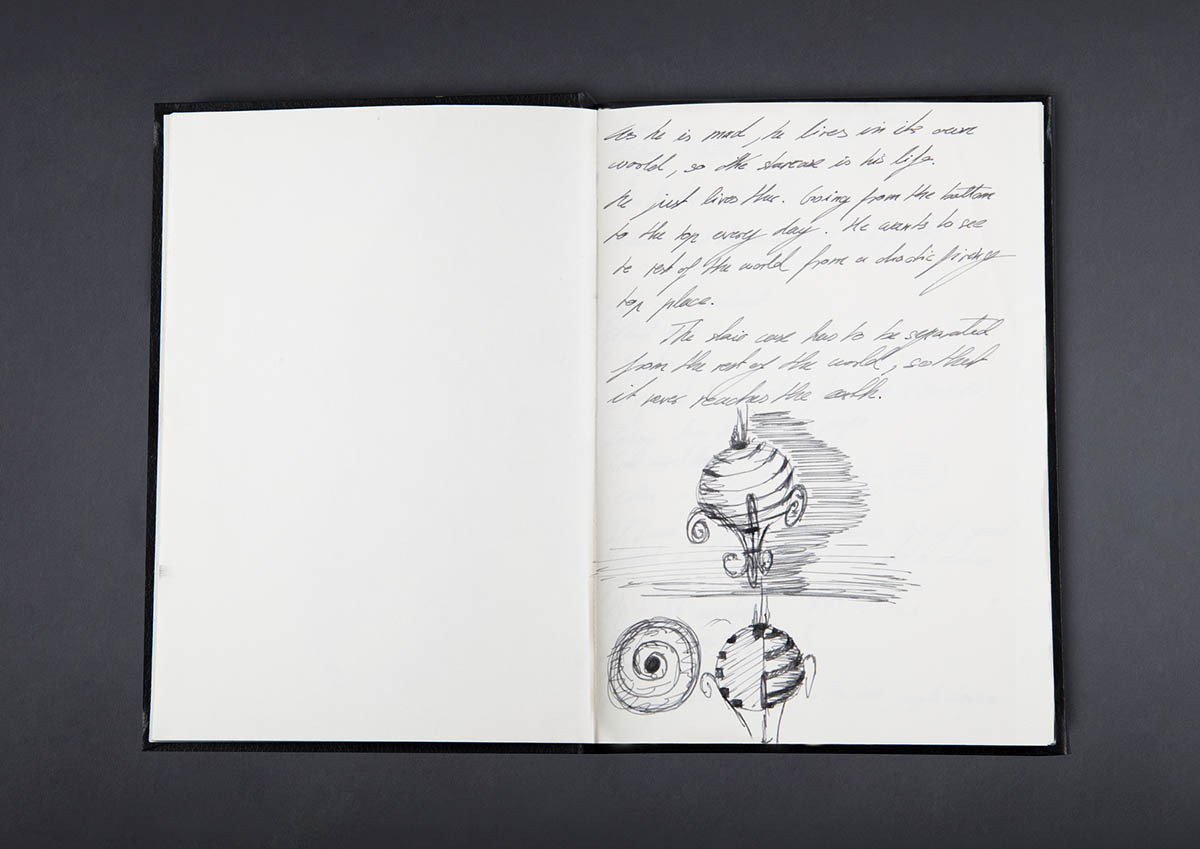 As he is mad, he lives in its own
world, so the starcase is his life.
he just lives thre. Going from the bottom
to the top every day. He wants to see
te rest of the world from a
top place.
The stair case has to be separated
from the rest of the world, so that
it never reaches the earth.